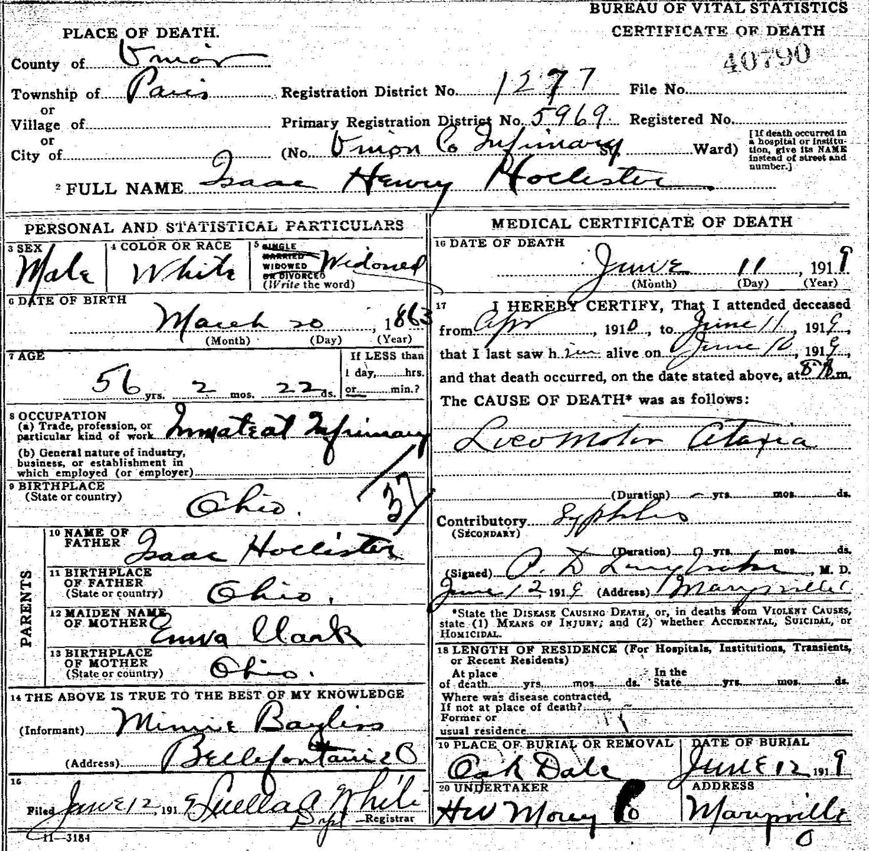 BUREAU OF VITAL STATISTICS
CERTIFICATE OF DEATH
40790
PLACE OF DEATH.
County of Union
Township of Paris
or
Village of
or
City of
Registration District No. 1277 File No.
Primary Registration District No. 5969 Registered No.
(No. Union Co Infirmary St. Ward)
[If death occurred in
a hospital or institu-
tion, give its NAME
instead of street and
number.]
2 FULL NAME Isaac Henry Hollister
PERSONAL AND STATISTICAL PARTICULARS
3 SEX
Male
4 COLOR OR RACE
White
5 SINGLE
MARRIED
WIDOWED
OR DIVORCED
(Write the word)
Widowed
6 DATE OF BIRTH
March 20, 1863
(Month) (Day) (Year)
7 AGE
56 yrs. 2 mos. 22 ds.
If LESS than
1 day, hrs.
or min.?
8 OCCUPATION
(a) Trade, profession, or
particular kind of work Inmate at Infirmary
(b) General nature of industry,
business, or establishment in
which employed (or employer)
37
9 BIRTHPLACE
(State or country)
Ohio.
PARENTS
10 NAME OF
FATHER
Isaac Hollister
11 BIRTHPLACE
OF FATHER
(State or country)
Ohio.
12 MAIDEN NAME
OF MOTHER
Emva Clark
13 BIRTHPLACE
OF MOTHER
(State or country)
Ohio.
14 THE ABOVE IS TRUE TO THE BEST OF MY KNOWLEDGE
(Informant) Minnie Bayliss
(Address) Bellefontaine O
15
Filed June 12 1919 Luella A White
Dept Registrar
11—3184
MEDICAL CERTIFICATE OF DEATH
16 DATE OF DEATH
June 11, 1919
(Month) (Day) (Year)
17 I HEREBY CERTIFY, That I attended deceased
from Apr, 1910, to June 11, 1919,
that I last saw him alive on June 10, 1919,
and that death occurred, on the date stated above, at m.
The CAUSE OF DEATH* was as follows:
Locomotor Ataxia
(Duration) yrs. mos. ds.
Contributory Syphilis
(SECONDARY)
(Duration) yrs. mos. ds.
(Signed) M. D.
June 12 1919 (Address) Marysville O
*State the DISEASE CAUSING DEATH, or, in deaths from VIOLENT CAUSES,
state (1) MEANS OF INJURY; and (2) whether ACCIDENTAL, SUICIDAL, or
HOMICIDAL.
18 LENGTH OF RESIDENCE (For Hospitals, Institutions, Transients,
or Recent Residents)
At place
of death yrs. mos. ds.
In the
State yrs. mos. ds.
Where was disease contracted,
If not at place of death?
Former or
usual residence
19 PLACE OF BURIAL OR REMOVAL
Oak Dale
DATE OF BURIAL
June 12 1919
20 UNDERTAKER
HW Morey Co
ADDRESS
Marysville
O